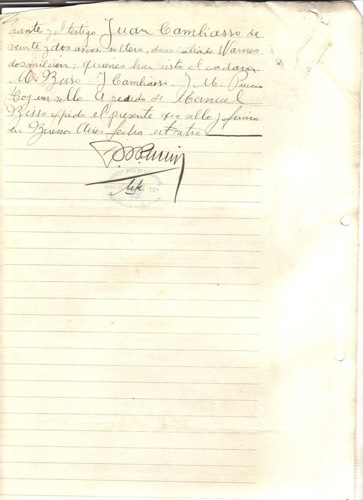 rante y el testigo Juan Cambiasso de
veinte y dos años soltero, domiciliado Warnes
dos mil cien; quienes han visto el cadaver
M. Bisso. J. Cambiasso. J. M.
Hay un sello. A pedido de Manuel
Bisso expido el presente que sello y firmo
en Buenos Aires fecha ut retro